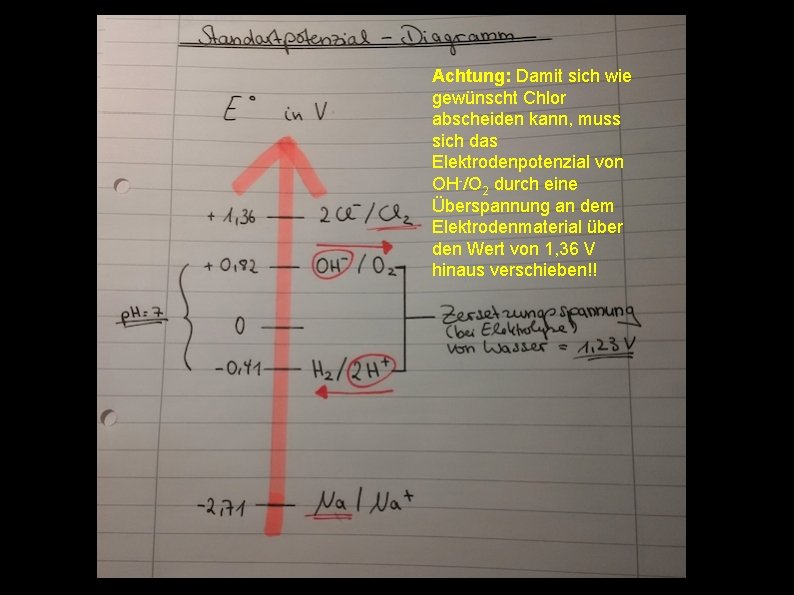 Standartpotenzial - Diagramm
Achtung: Damit sich wie
gewünscht Chlor
abscheiden kann, muss
sich das
Elektrodenpotenzial von
OH⁻/O₂ durch eine
Überspannung an dem
Elektrodenmaterial über
den Wert von 1,36 V
hinaus verschieben!!
E° in V
+ 1,36 2Cl⁻/Cl₂
+ 0,82 OH⁻/O₂
pH=7
0
Zersetzungsspannung
(bei Elektrolyse)
von Wasser = 1,23 V
-0,41 H₂/2H⁺
-2,71 Na/Na⁺